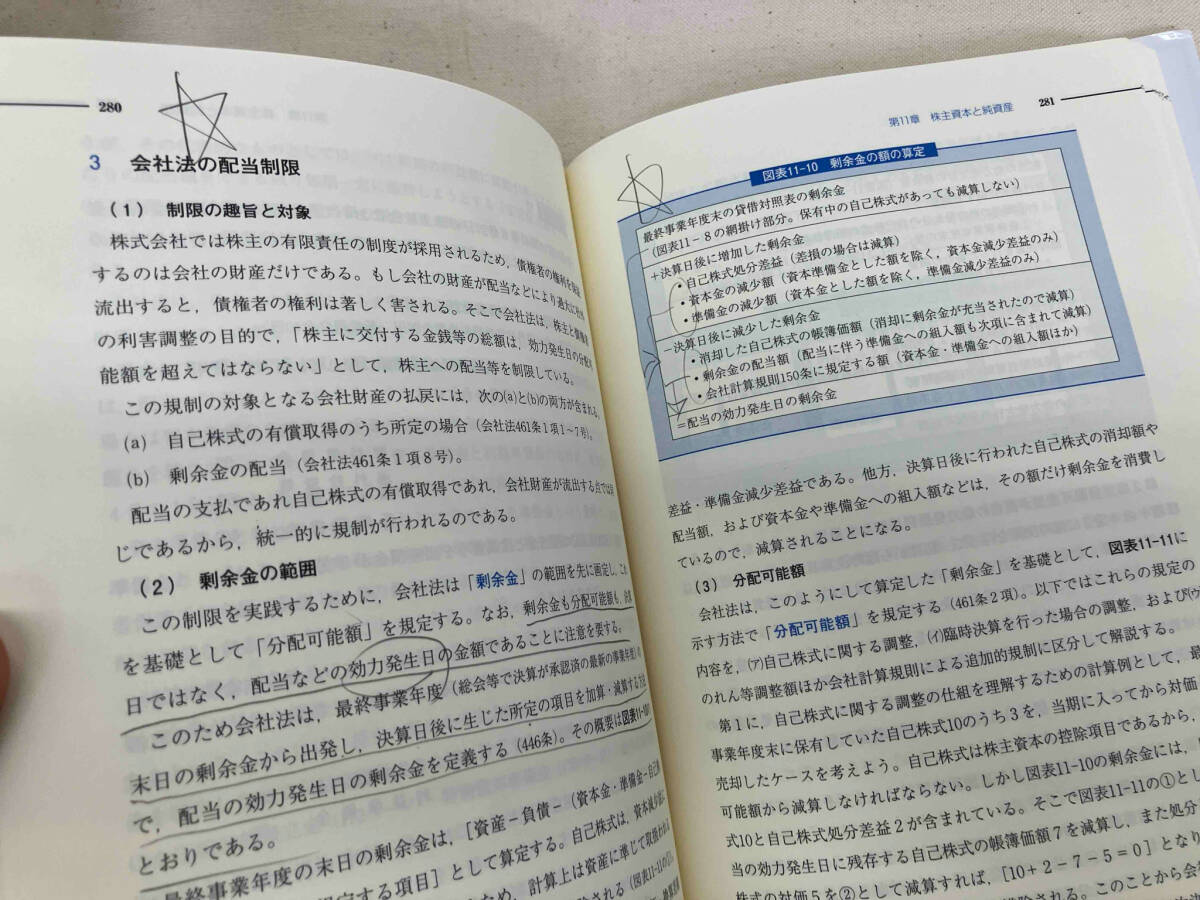 280
3 会社法の配当制限
(1) 制限の趣旨と対象
株式会社では株主の有限責任の制度が採用されるため，債権者の権利を
するのは会社の財産だけである。もし会社の財産が配当などにより過大に社外
流出すると，債権者の権利は著しく害される。そこで会社法は，株主と債権者
の利害調整の目的で，「株主に交付する金銭等の総額は，効力発生日の分配可
能額を超えてはならない」として，株主への配当等を制限している。
この規制の対象となる会社財産の払戻には，次の(a)と(b)の両方が含まれる。
(a) 自己株式の有償取得のうち所定の場合（会社法461条1項1～7号）。
(b) 剰余金の配当（会社法461条1項8号）。
配当の支払であれ自己株式の有償取得であれ，会社財産が流出する点では同
じであるから，統一的に規制が行われるのである。
(2) 剰余金の範囲
この制限を実践するために，会社法は「剰余金」の範囲を先に画定し，これ
を基礎として「分配可能額」を規定する。なお，剰余金も分配可能額も，
日ではなく，配当などの効力発生日の金額であることに注意を要する。
このため会社法は，最終事業年度（総会等で決算が承認済の最新の事業年度）の
末日の剰余金から出発し，決算日後に生じた所定の項目を加算・減算する方法
で，配当の効力発生日の剰余金を定義する（446条）。その概要は図表11-10の
とおりである。
最終事業年度の末日の剰余金は，［資産－負債－（資本金・準備金－自己株
規定する項目］として算定する。自己株式は，資本減少
ため，計算上は資産に準じて取扱われ
第11章 株主資本と純資産
281
図表11-10 剰余金の額の算定
最終事業年度末の貸借対照表の剰余金
（図表11－8の網掛け部分。保有中の自己株式があっても減算しない）
＋決算日後に増加した剰余金
・自己株式処分差益（差損の場合は減算）
・資本金の減少額（資本準備金とした額を除く，資本金減少差益のみ）
・準備金の減少額（資本金とした額を除く，準備金減少差益のみ）
－決算日後に減少した剰余金
・消却した自己株式の帳簿価額（消却に剰余金が充当されたので減算）
・剰余金の配当額（配当に伴う準備金への組入額も次項に含まれて減算）
・会社計算規則150条に規定する額（資本金・準備金への組入額ほか）
＝配当の効力発生日の剰余金
差益・準備金減少差益である。他方，決算日後に行われた自己株式の消却額や
配当額，および資本金や準備金への組入額などは，その額だけ剰余金を消費し
ているので，減算されることになる。
(3) 分配可能額
会社法は，このようにして算定した「剰余金」を基礎として，図表11-11に
示す方法で「分配可能額」を規定する（461条2項）。以下ではこれらの規定の
内容を，(ア)自己株式に関する調整，(イ)臨時決算を行った場合の調整，および(ウ)
のれん等調整額ほか会社計算規則による追加的規制に区分して解説する。
第1に，自己株式に関する調整の仕組を理解するための計算例として，最
事業年度末に保有していた自己株式10のうち3を，当期に入ってから対価
売却したケースを考えよう。自己株式は株主資本の控除項目であるから，
可能額から減算しなければならない。しかし図表11-10の剰余金には，
式10と自己株式処分差益2が含まれている。そこで図表11-11の①とし
当の効力発生日に残存する自己株式の帳簿価額7を減算し，また処分
株式の対価5を②として減算すれば，［10＋2－7－5＝0］となり
排除される。このことから会